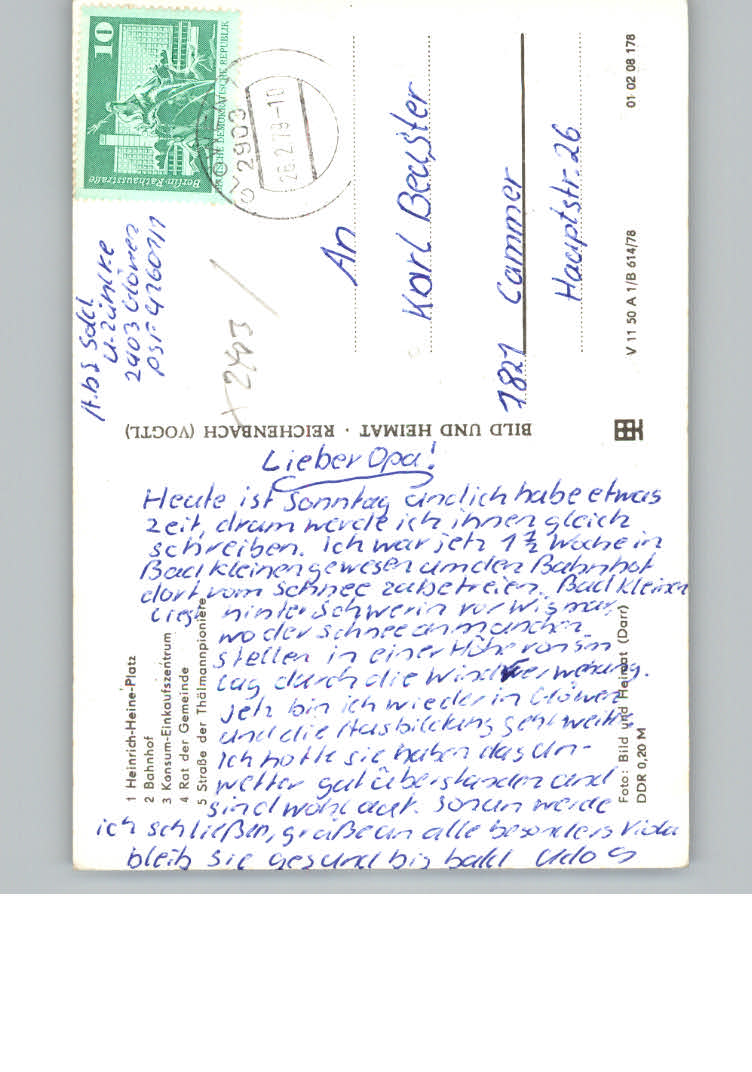 10
Berlin-Rathausstraße
DEMOKRATISCHE REPUBLIK
2903
26.2.79-10
Abs Sold.
2903 Glöwen
PSF 42601/1
An
Karl Bechster
7821 Cammer
Hauptstr. 26
01 02 08 178
V 11 50 A 1/B 614/78
BILD UND HEIMAT · REICHENBACH (VOGTL)
Lieber Opa!
Heute ist Sonntag und ich habe etwas
Zeit, drum werde ich ihnen gleich
schreiben. Ich war jetz 1 ½ Woche in
Bad Kleinen gewesen um den Bahnhof
dort vom Schnee zu befreien. Bad Kleinen
liegt hinter Schwerin vor Wismar,
wo der Schnee an manchen
stellen in einer Höhe von 5m
lag durch die Windverwehung.
Jetz bin ich wieder in Glöwen
und die Ausbildung geht weiter
Ich hoffe sie haben das Un-
wetter gut überstanden und
sind wohl auf. So nun werde
ich schließen, grüße an alle besonders Viola
bleib sie gesund bis bald Udo
1 Heinrich-Heine-Platz
2 Bahnhof
3 Konsum-Einkaufszentrum
4 Rat der Gemeinde
5 Straße der Thälmannpioniere
Foto: Bild und Heimat (Darr)
DDR 0,20 M